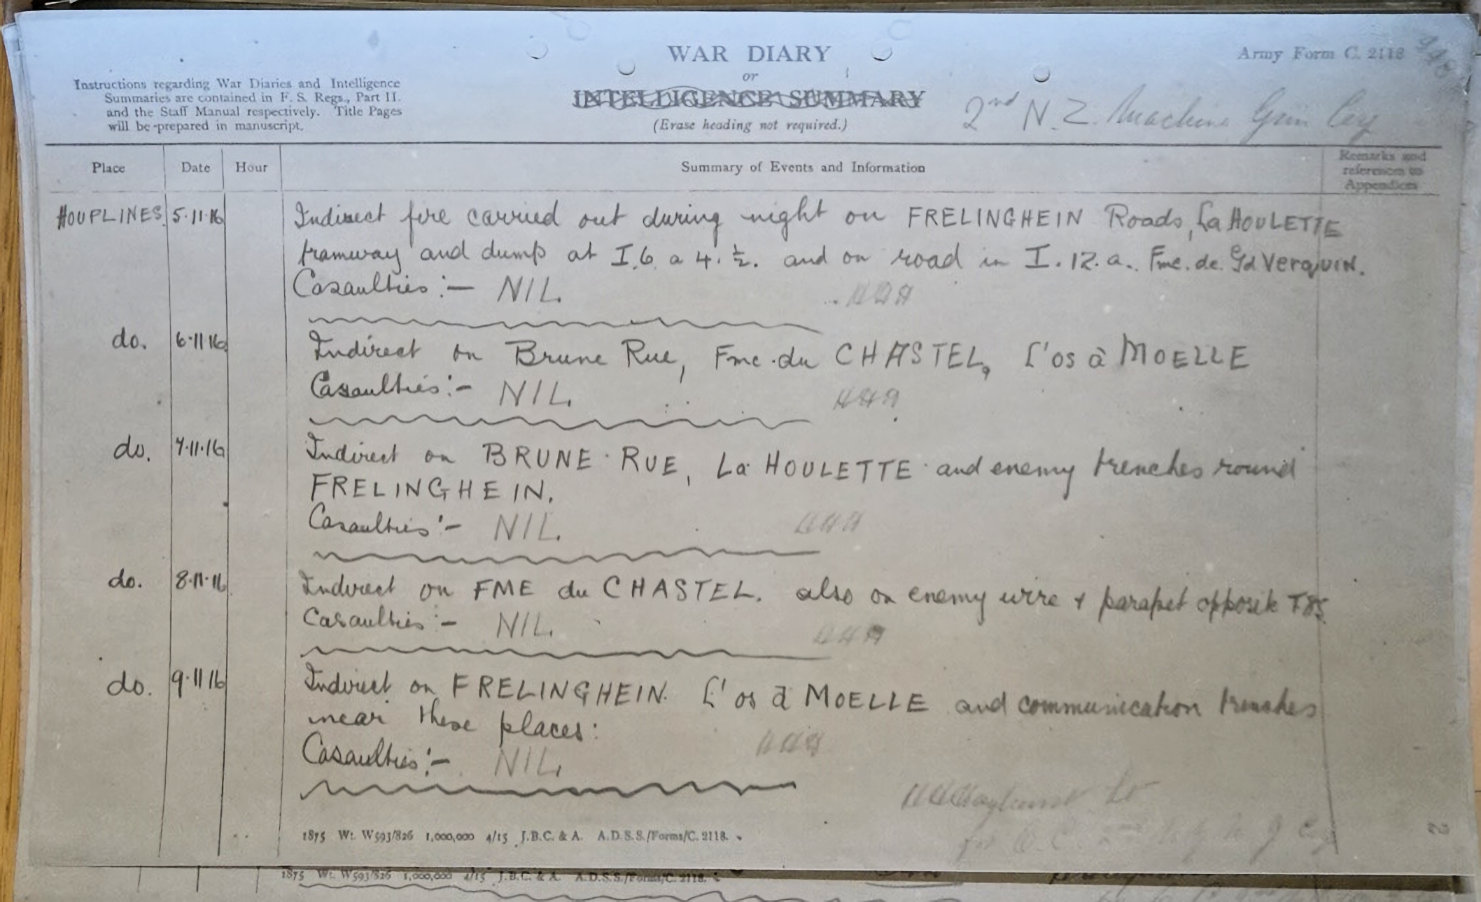 WAR DIARY
or
INTELLIGENCE SUMMARY
(Erase heading not required.)
Army Form C. 2118
Instructions regarding War Diaries and Intelligence
Summaries are contained in F. S. Regs., Part II.
and the Staff Manual respectively. Title Pages
will be prepared in manuscript.
2nd N.Z. Machine Gun Coy
Place Date Hour Summary of Events and Information Remarks and references to Appendices
HOUPLINES 5.11.16 Indirect fire carried out during night on FRELINGHEIN Roads, La HOULETTE
tramway and dump at I.6.a 4.½. and on road in I.12.a. Fme. de. Gd Verquin.
Casaulties:— NIL.
do. 6.11.16 Indirect on Brune Rue, Fme. du CHASTEL, L'os à MOELLE
Casaulties:— NIL.
do. 7.11.16 Indirect on BRUNE RUE, La HOULETTE and enemy trenches round
FRELINGHEIN.
Casaulties:— NIL.
do. 8.11.16 Indirect on FME du CHASTEL. also on enemy wire & parapet opposite
Casaulties:— NIL.
do. 9.11.16 Indirect on FRELINGHEIN. L'os à MOELLE and communication trenches
near these places:
Casaulties:— NIL.
1875 Wt. W593/826 1,000,000 4/15 J.B.C. & A. A.D.S.S./Forms/C. 2118.
1875 Wt. W593/826 1,000,000 4/15 J.B.C. & A. A.D.S.S./Forms/C. 2118.